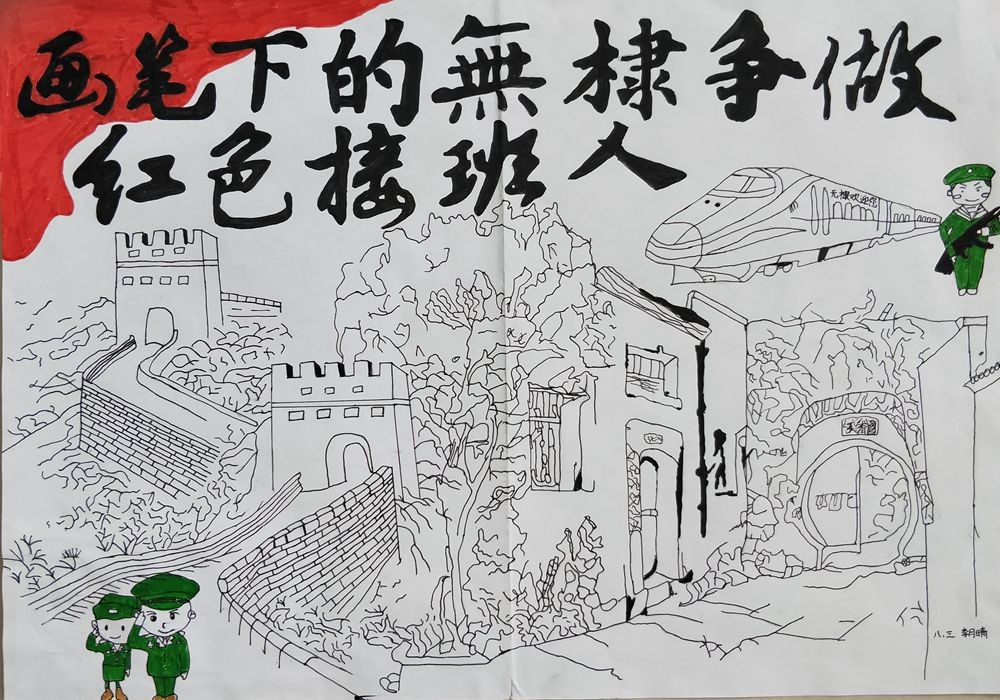 画笔下的無棣争做
红色接班人
无棣欢迎您
八.三